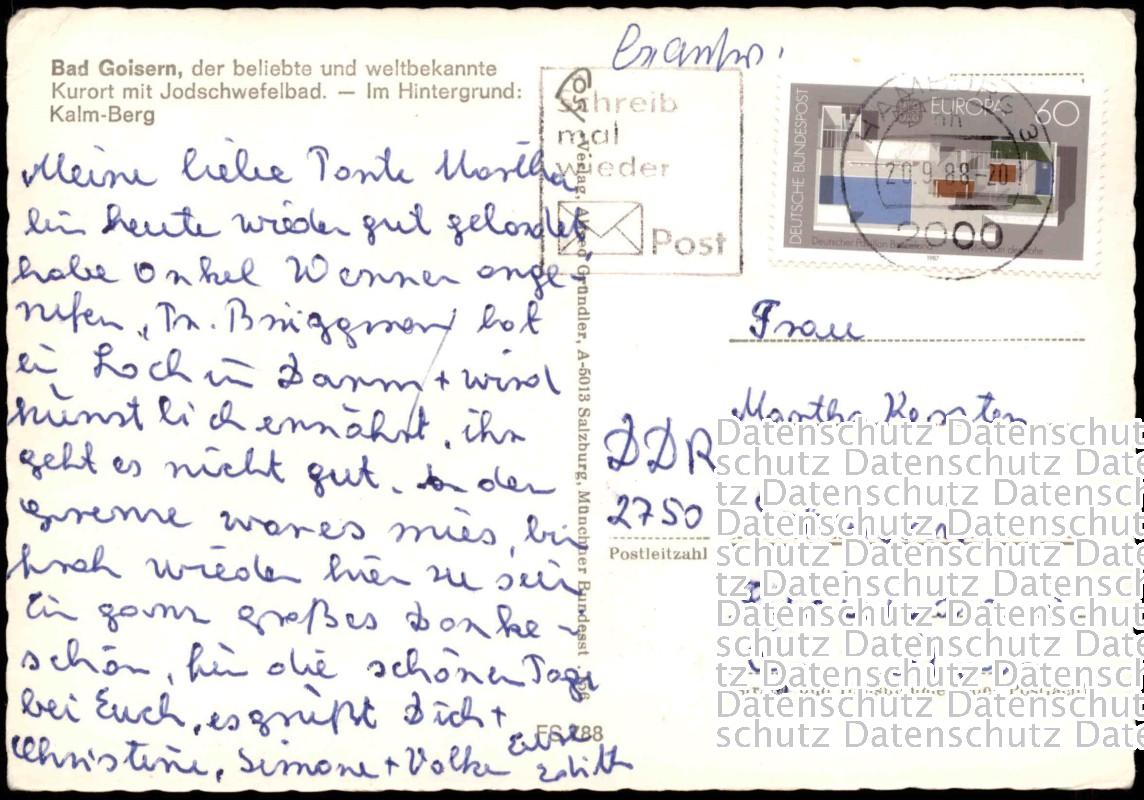 Bad Goisern, der beliebte und weltbekannte
Kurort mit Jodschwefelbad. — Im Hintergrund:
Kalm-Berg
Meine liebe Tante Martha
bin heute wieder gut gelandet
habe Onkel Werner ange-
rufen, Dr. Brüggman hat
ein Loch im Darm + wird
künstlich ernährt, ihr
geht es nicht gut. An der
Grenze war es mies, bin
froh wieder hier zu sein
Ein ganz großes Danke-
schön, für die schönen Tage
bei Euch, es grüßt Dich +
Christine, Simone + Volker Eure
Edith
Verlag, Alfred Gründler, A-5013 Salzburg, Münchner Bundesstr.
FS 788
schreib
mal
wieder
Post
DEUTSCHE BUNDESPOST
EUROPA 60
Deutscher Pavillon Barcelona
1987
HAMBURG
20.9.88-20
2000
Frau
Martha Karsten
DDR
2750
Postleitzahl
Datenschutz Datenschut
schutz Datenschutz Daten
tz Datenschutz Datensch
Datenschutz Datenschut
schutz Datenschutz Daten
tz Datenschutz Datensch
Datenschutz Datenschut
schutz Datenschutz Daten
tz Datenschutz Datensch
Datenschutz Datenschut
schutz Datenschutz Daten